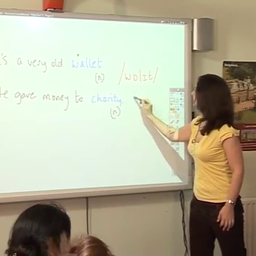 's a very old wallet
(n) /wɒlɪt/
e gave money to charity
(n)